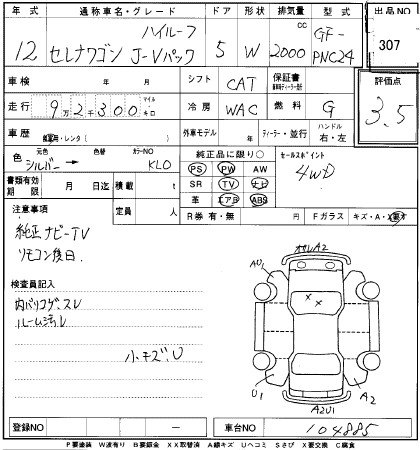 年式 通称車名・グレード ドア 形状 排気量 型式 出品NO
12 セレナワゴン ハイルーフ J-Vパック 5 W 2000 CC GF-PNC24 307
車検 年 月 シフト CAT 保証書 評価点
走行 9万2千300 マイル キロ 冷房 WAC 燃料 G 3.5
車歴 自家用・レンタ( ) 外車モデル 年 ディーラー・並行 ハンドル 右・左
色 元色 シルバー → 色替 カラーNO KL0
純正品に限り○ セールスポイント
PS PW AW 4WD
書類有効期限 月 日迄 積載 t SR TV ナビ
定員 人 革 エアB ABS
R券 有・無 Fガラス キズ・A・X要
注意事項
純正ナビーTV
リモコン後日.
検査員記入
内バリコゲ・スレ
ルーム汚レ
小キズU
オサレA2
AU1
U1 A2
A2U1
登録NO ー 車台NO 104885
P要塗装 W波有り B要鈑金 XX取替済 A線キズ Uヘコミ Sさび X要交換 C腐食